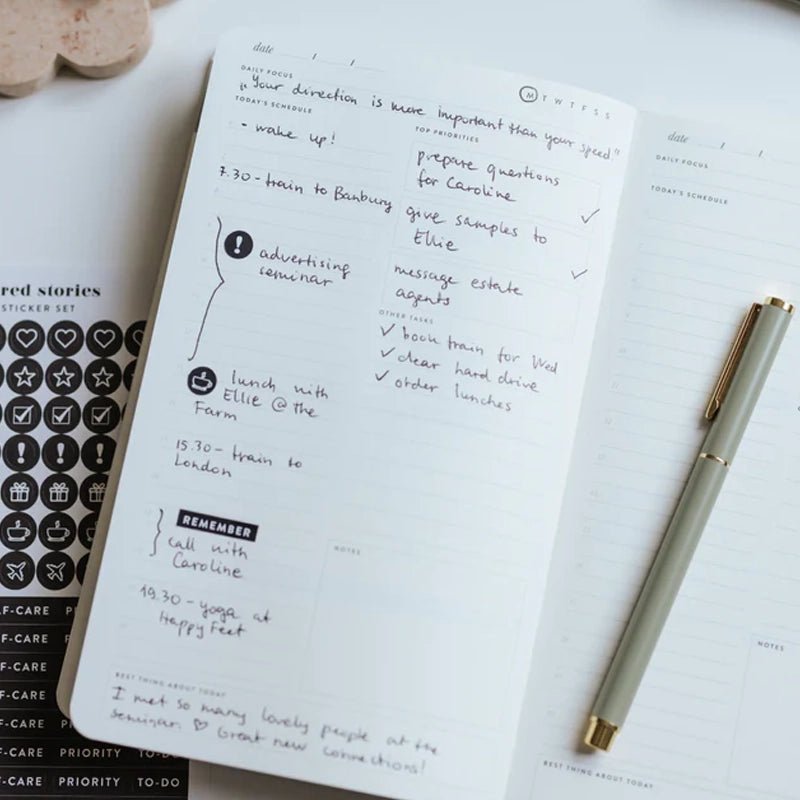 date / /
DAILY FOCUS
M T W T F S S
"Your direction is more important than your speed."
TODAY'S SCHEDULE
• wake up!
7.30 - train to Banbury
! advertising
seminar
lunch with
Ellie @ the
Farm
15.30 - train to
London
REMEMBER
call with
Caroline
19.30 - yoga at
Happy Feet
TOP PRIORITIES
prepare questions
for Caroline
✓
give samples to
Ellie
✓
message estate
agents
OTHER TASKS
✓ book train for Wed
✓ clear hard drive
✓ order lunches
NOTES
BEST THING ABOUT TODAY
I met so many lovely people at the
seminar. ♡ Great new connections!
date / /
DAILY FOCUS
TODAY'S SCHEDULE
NOTES
BEST THING ABOUT TODAY
red stories
STICKER SET
F-CARE
F-CARE
F-CARE
F-CARE
F-CARE PRIORITY TO-DO
F-CARE PRIORITY TO-DO